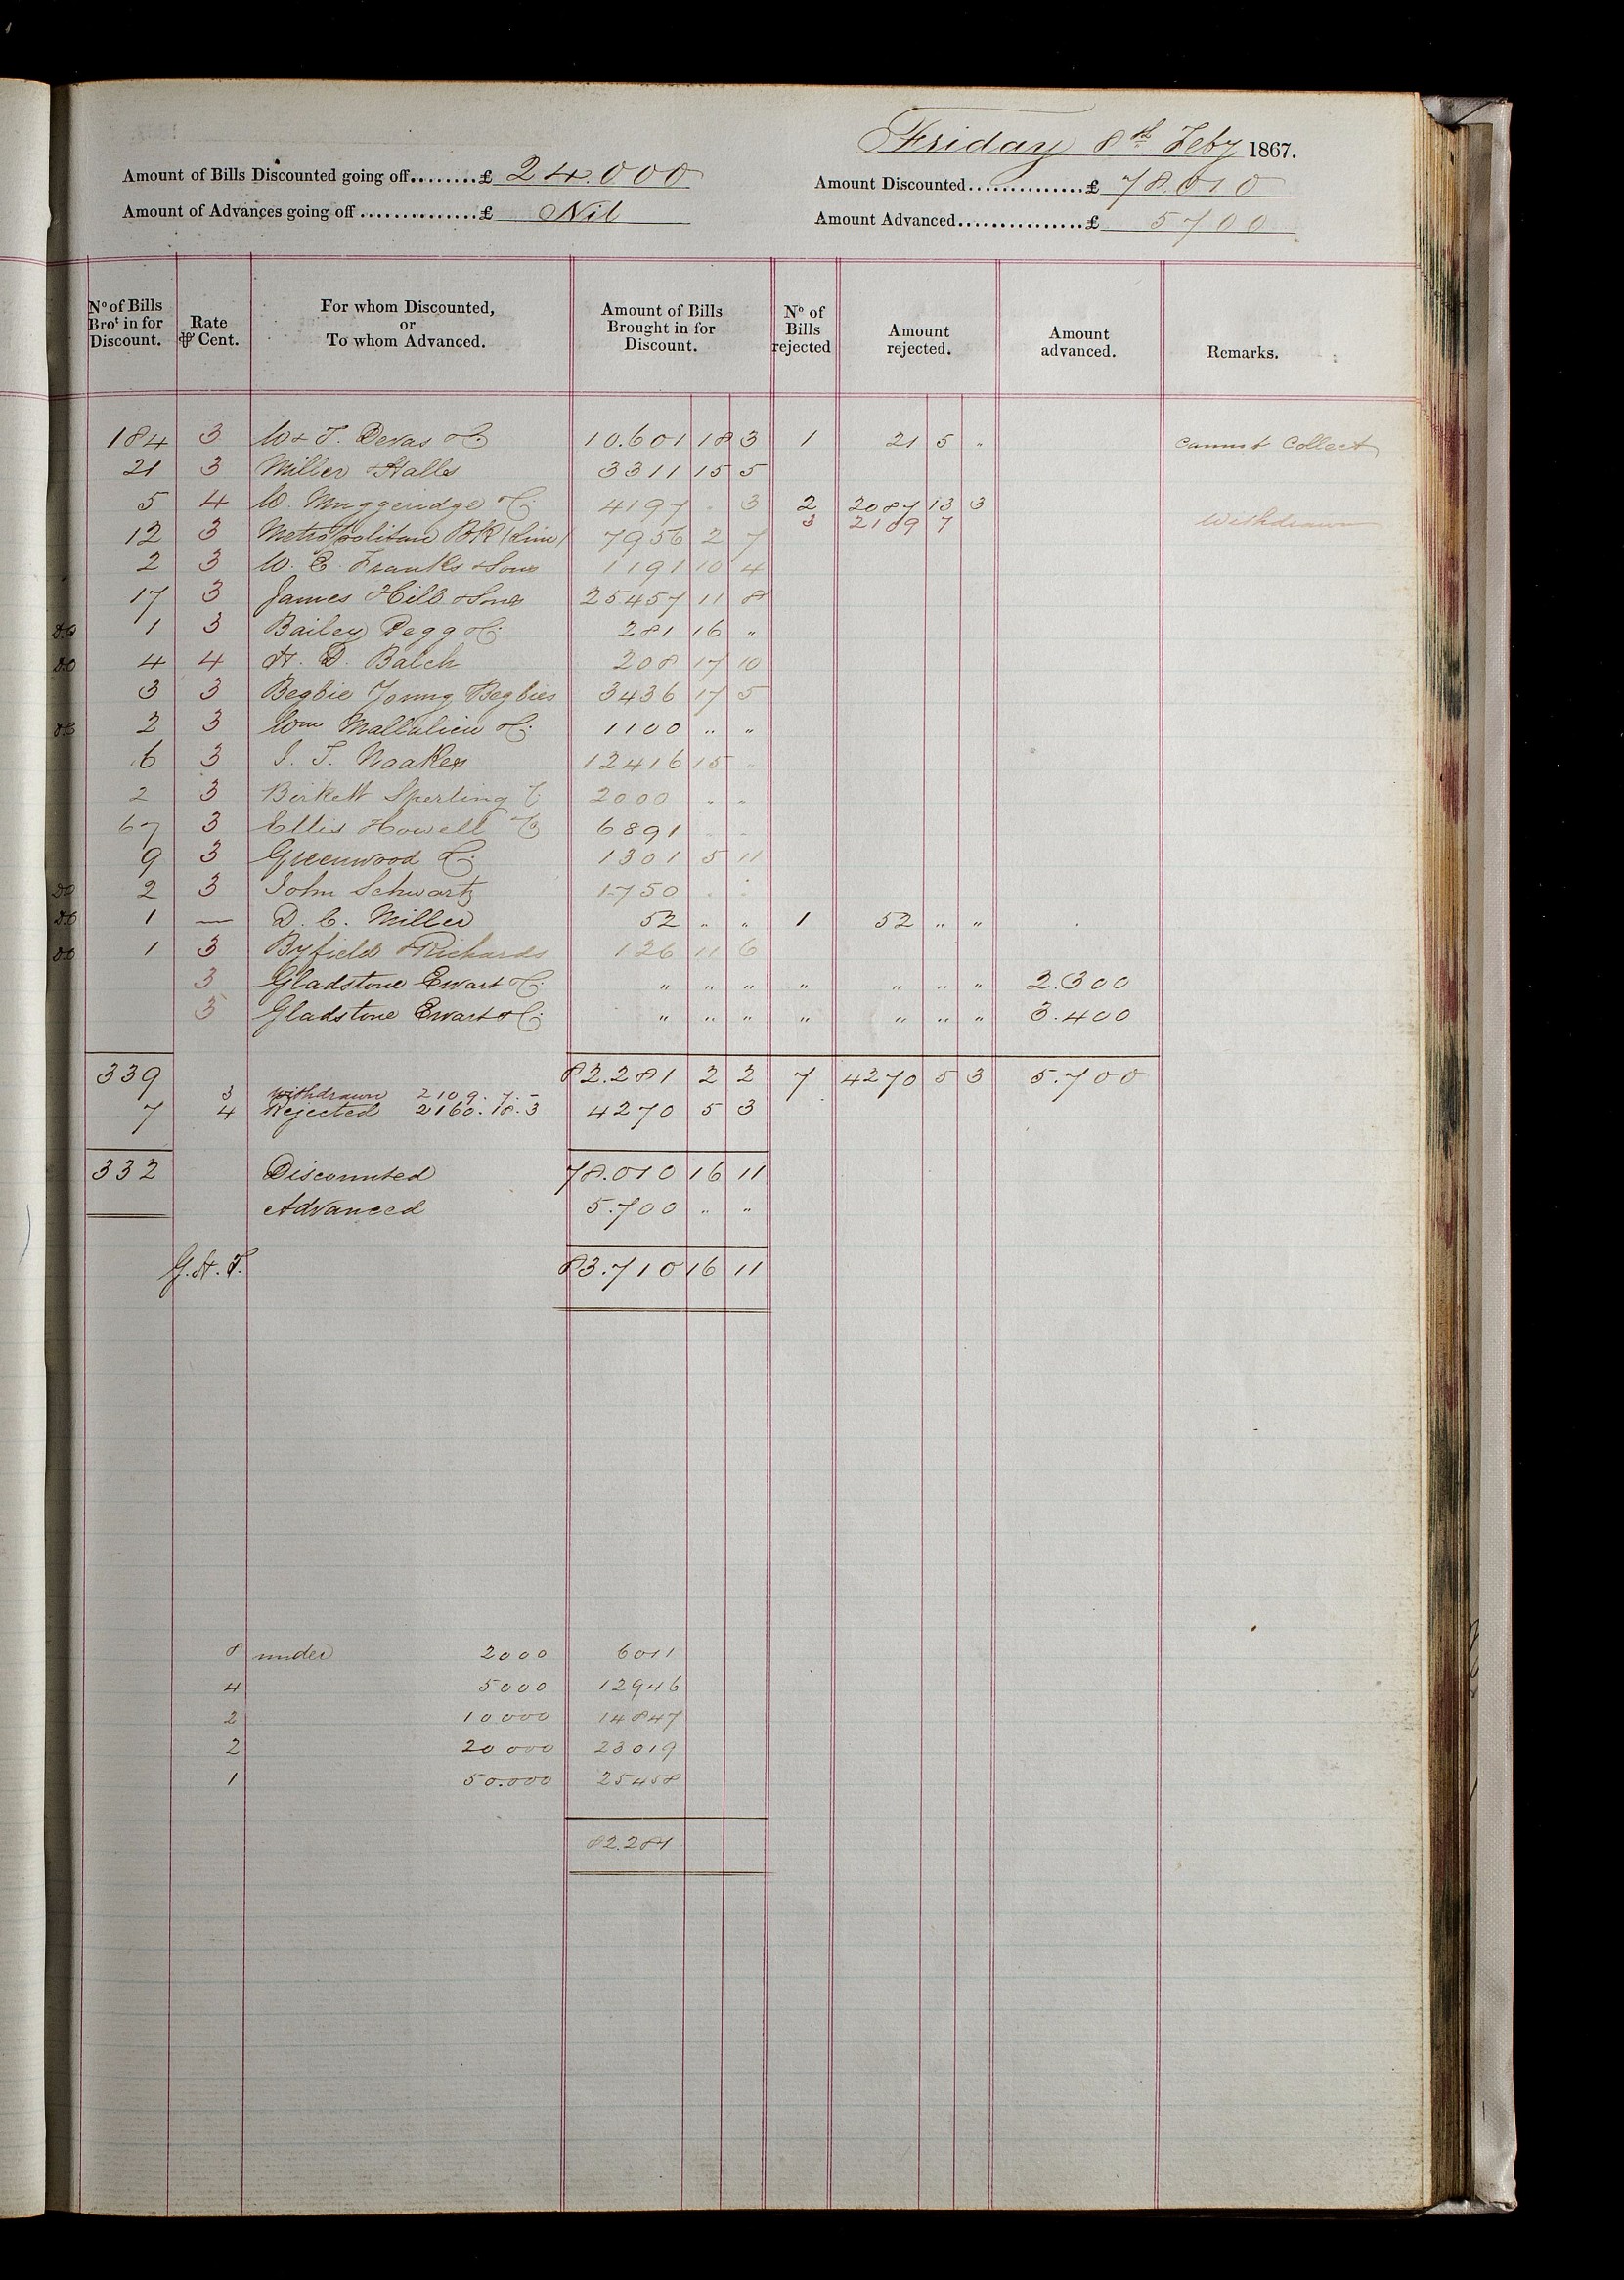 Friday 8th Feby 1867.
Amount of Bills Discounted going off........£ 24.000
Amount Discounted..............£ 78.010
Amount of Advances going off..............£ Nil
Amount Advanced...............£ 5700
No of Bills Brot in for Discount. Rate ⅌ Cent. For whom Discounted, or To whom Advanced. Amount of Bills Brought in for Discount. No of Bills rejected Amount rejected. Amount advanced. Remarks.
184 3 W & T. Devas & Co 10.601 18 3 1 21 5 " Cannot Collect
21 3 Miller & Halls 3311 15 5
5 4 W. Muggeridge & Co. 4197 . 3 2 2087 13 3
3 2109 7 Withdrawn
12 3 Metropolitan BK (Lim) 7956 2 7
2 3 W. E. Franks & Sons 1191 10 4
17 3 James Hill & Sons 25457 11 8
Do 1 3 Bailey Pegg & Co. 281 16 "
Do 4 4 H. D. Balch 208 17 10
3 3 Begbie Young Begbies 3436 17 5
Do 2 3 Wm Mallalieu & Co. 1100 " "
6 3 I. T. Noakes 12416 15 "
2 3 Birkett Sperling & Co 2000 " "
67 3 Ellis Howell & Co 6891 " "
9 3 Greenwood & Co. 1301 5 11
Do 2 3 John Schwartz 1750 . .
Do 1 — D. C. Miller 52 " " 1 52 " "
Do 1 3 Byfield & Richards 126 11 6
3 Gladstone Ewart & Co. " " " " " " " 2.300
3 Gladstone Ewart & Co. " " " " " " " 3.400
339 82.281 2 2 7 4270 5 3 5.700
3 Withdrawn 2109. 7. -
7 4 Rejected 2160. 18. 3 4270 5 3
332 Discounted 78.010 16 11
Advanced 5.700 " "
G.H.T. 83.710 16 11
8 under 2000 6011
4 5000 12946
2 10000 14847
2 20000 23019
1 50.000 25458
82.281